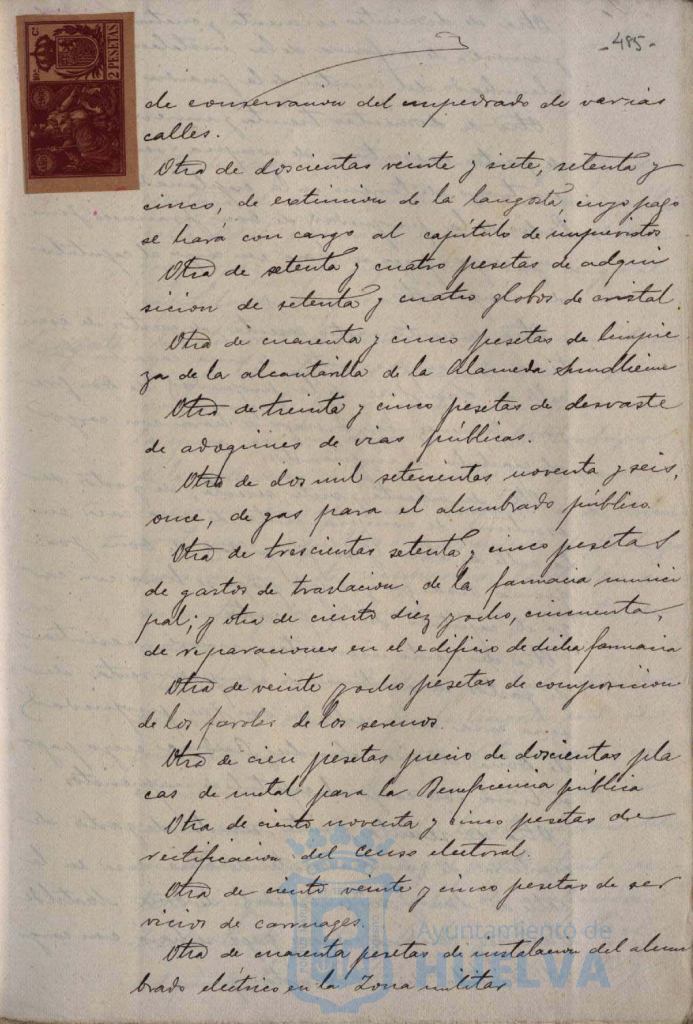 -485-
2 PESETAS
de conservacion del empedrado de varias
calles.
Otra de doscientas veinte y siete, setenta y
cinco, de extincion de la langosta, cuyo pago
se hará con cargo al capítulo de imprevistos
Otra de setenta y cuatro pesetas de adqui
sicion de setenta y cuatro globos de cristal
Otra de cuarenta y cinco pesetas de limpie
za de la alcantarilla de la Alameda Sundheim
Otra de treinta y cinco pesetas de desvaste
de adoquines de vias públicas.
Otra de dos mil setecientas noventa y seis,
once, de gas para el alumbrado público
Otra de trescientas setenta y cinco pesetas
de gastos de traslacion de la farmacia munici
pal; y otra de ciento diez y ocho, cincuenta,
de reparaciones en el edificio de dicha farmacia
Otra de veinte y ocho pesetas de composicion
de los faroles de los serenos.
Otra de cien pesetas precio de doscientas pla
cas de metal para la Beneficencia pública
Otra de ciento noventa y cinco pesetas de
rectificacion del censo electoral.
Otra de ciento veinte y cinco pesetas de ser
vicios de carruages.
Otra de cuarenta pesetas de instalacion del alum
brado eléctrico en la Zona militar
Ayuntamiento de
HUELVA